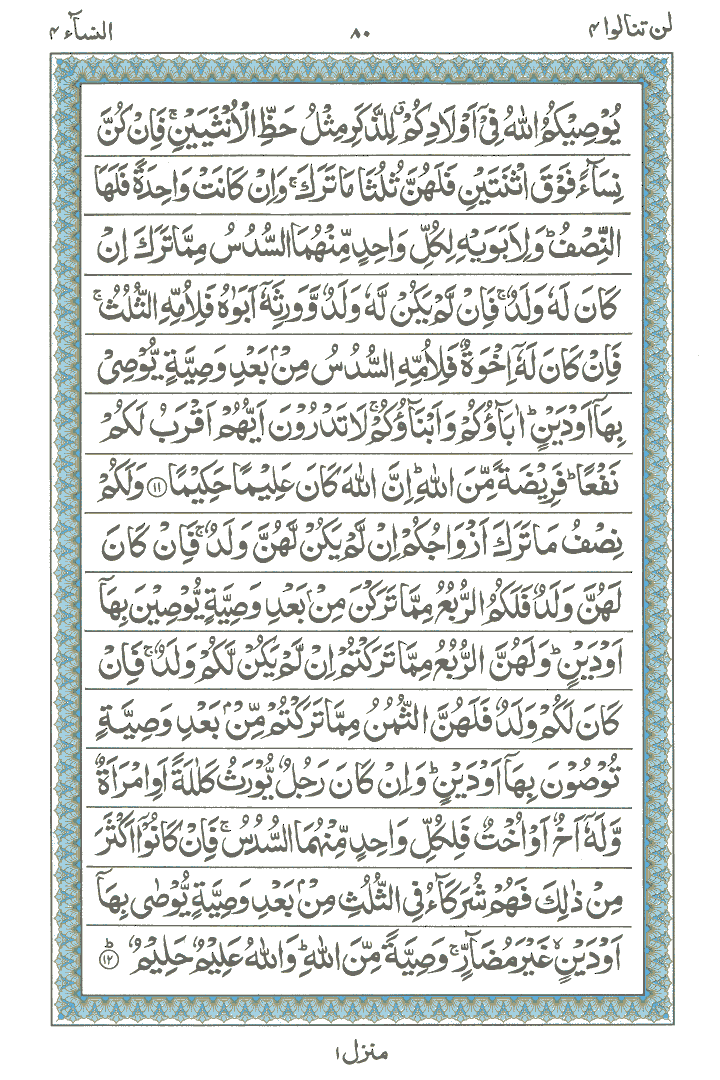 لن تنالوا ٤ ٨٠ النسآء ٤
يُوْصِيْكُمُ اللّٰهُ فِيْۤ اَوْلَادِكُمْ ۗ لِلذَّكَرِ مِثْلُ حَظِّ الْاُنْثَيَيْنِ ۚ فَاِنْ كُنَّ
نِسَآءً فَوْقَ اثْنَتَيْنِ فَلَهُنَّ ثُلُثَا مَا تَرَكَ ۚ وَاِنْ كَانَتْ وَاحِدَةً فَلَهَا
النِّصْفُ ؕ وَلِاَبَوَيْهِ لِكُلِّ وَاحِدٍ مِّنْهُمَا السُّدُسُ مِمَّا تَرَكَ اِنْ
كَانَ لَهٗ وَلَدٌ ۚ فَاِنْ لَّمْ يَكُنْ لَّهٗ وَلَدٌ وَّوَرِثَهٗۤ اَبَوٰهُ فَلِاُمِّهِ الثُّلُثُ ۚ
فَاِنْ كَانَ لَهٗۤ اِخْوَةٌ فَلِاُمِّهِ السُّدُسُ مِنْۢ بَعْدِ وَصِيَّةٍ يُّوْصِيْ
بِهَاۤ اَوْ دَيْنٍ ؕ اٰبَآؤُكُمْ وَاَبْنَآؤُكُمْ ۚ لَا تَدْرُوْنَ اَيُّهُمْ اَقْرَبُ لَكُمْ
نَفْعًا ؕ فَرِيْضَةً مِّنَ اللّٰهِ ؕ اِنَّ اللّٰهَ كَانَ عَلِيْمًا حَكِيْمًا ۝١١ وَلَكُمْ
نِصْفُ مَا تَرَكَ اَزْوَاجُكُمْ اِنْ لَّمْ يَكُنْ لَّهُنَّ وَلَدٌ ۚ فَاِنْ كَانَ
لَهُنَّ وَلَدٌ فَلَكُمُ الرُّبُعُ مِمَّا تَرَكْنَ مِنْۢ بَعْدِ وَصِيَّةٍ يُّوْصِيْنَ بِهَاۤ
اَوْ دَيْنٍ ؕ وَلَهُنَّ الرُّبُعُ مِمَّا تَرَكْتُمْ اِنْ لَّمْ يَكُنْ لَّكُمْ وَلَدٌ ۚ فَاِنْ
كَانَ لَكُمْ وَلَدٌ فَلَهُنَّ الثُّمُنُ مِمَّا تَرَكْتُمْ مِّنْۢ بَعْدِ وَصِيَّةٍ
تُوْصُوْنَ بِهَاۤ اَوْ دَيْنٍ ؕ وَاِنْ كَانَ رَجُلٌ يُّوْرَثُ كَلٰلَةً اَوِ امْرَاَةٌ
وَّلَهٗۤ اَخٌ اَوْ اُخْتٌ فَلِكُلِّ وَاحِدٍ مِّنْهُمَا السُّدُسُ ۚ فَاِنْ كَانُوْۤا اَكْثَرَ
مِنْ ذٰلِكَ فَهُمْ شُرَكَآءُ فِي الثُّلُثِ مِنْۢ بَعْدِ وَصِيَّةٍ يُّوْصٰى بِهَاۤ
اَوْ دَيْنٍ ۙ غَيْرَ مُضَآرٍّ ۚ وَصِيَّةً مِّنَ اللّٰهِ ؕ وَاللّٰهُ عَلِيْمٌ حَلِيْمٌ ؕ۝١٢
منزل ١